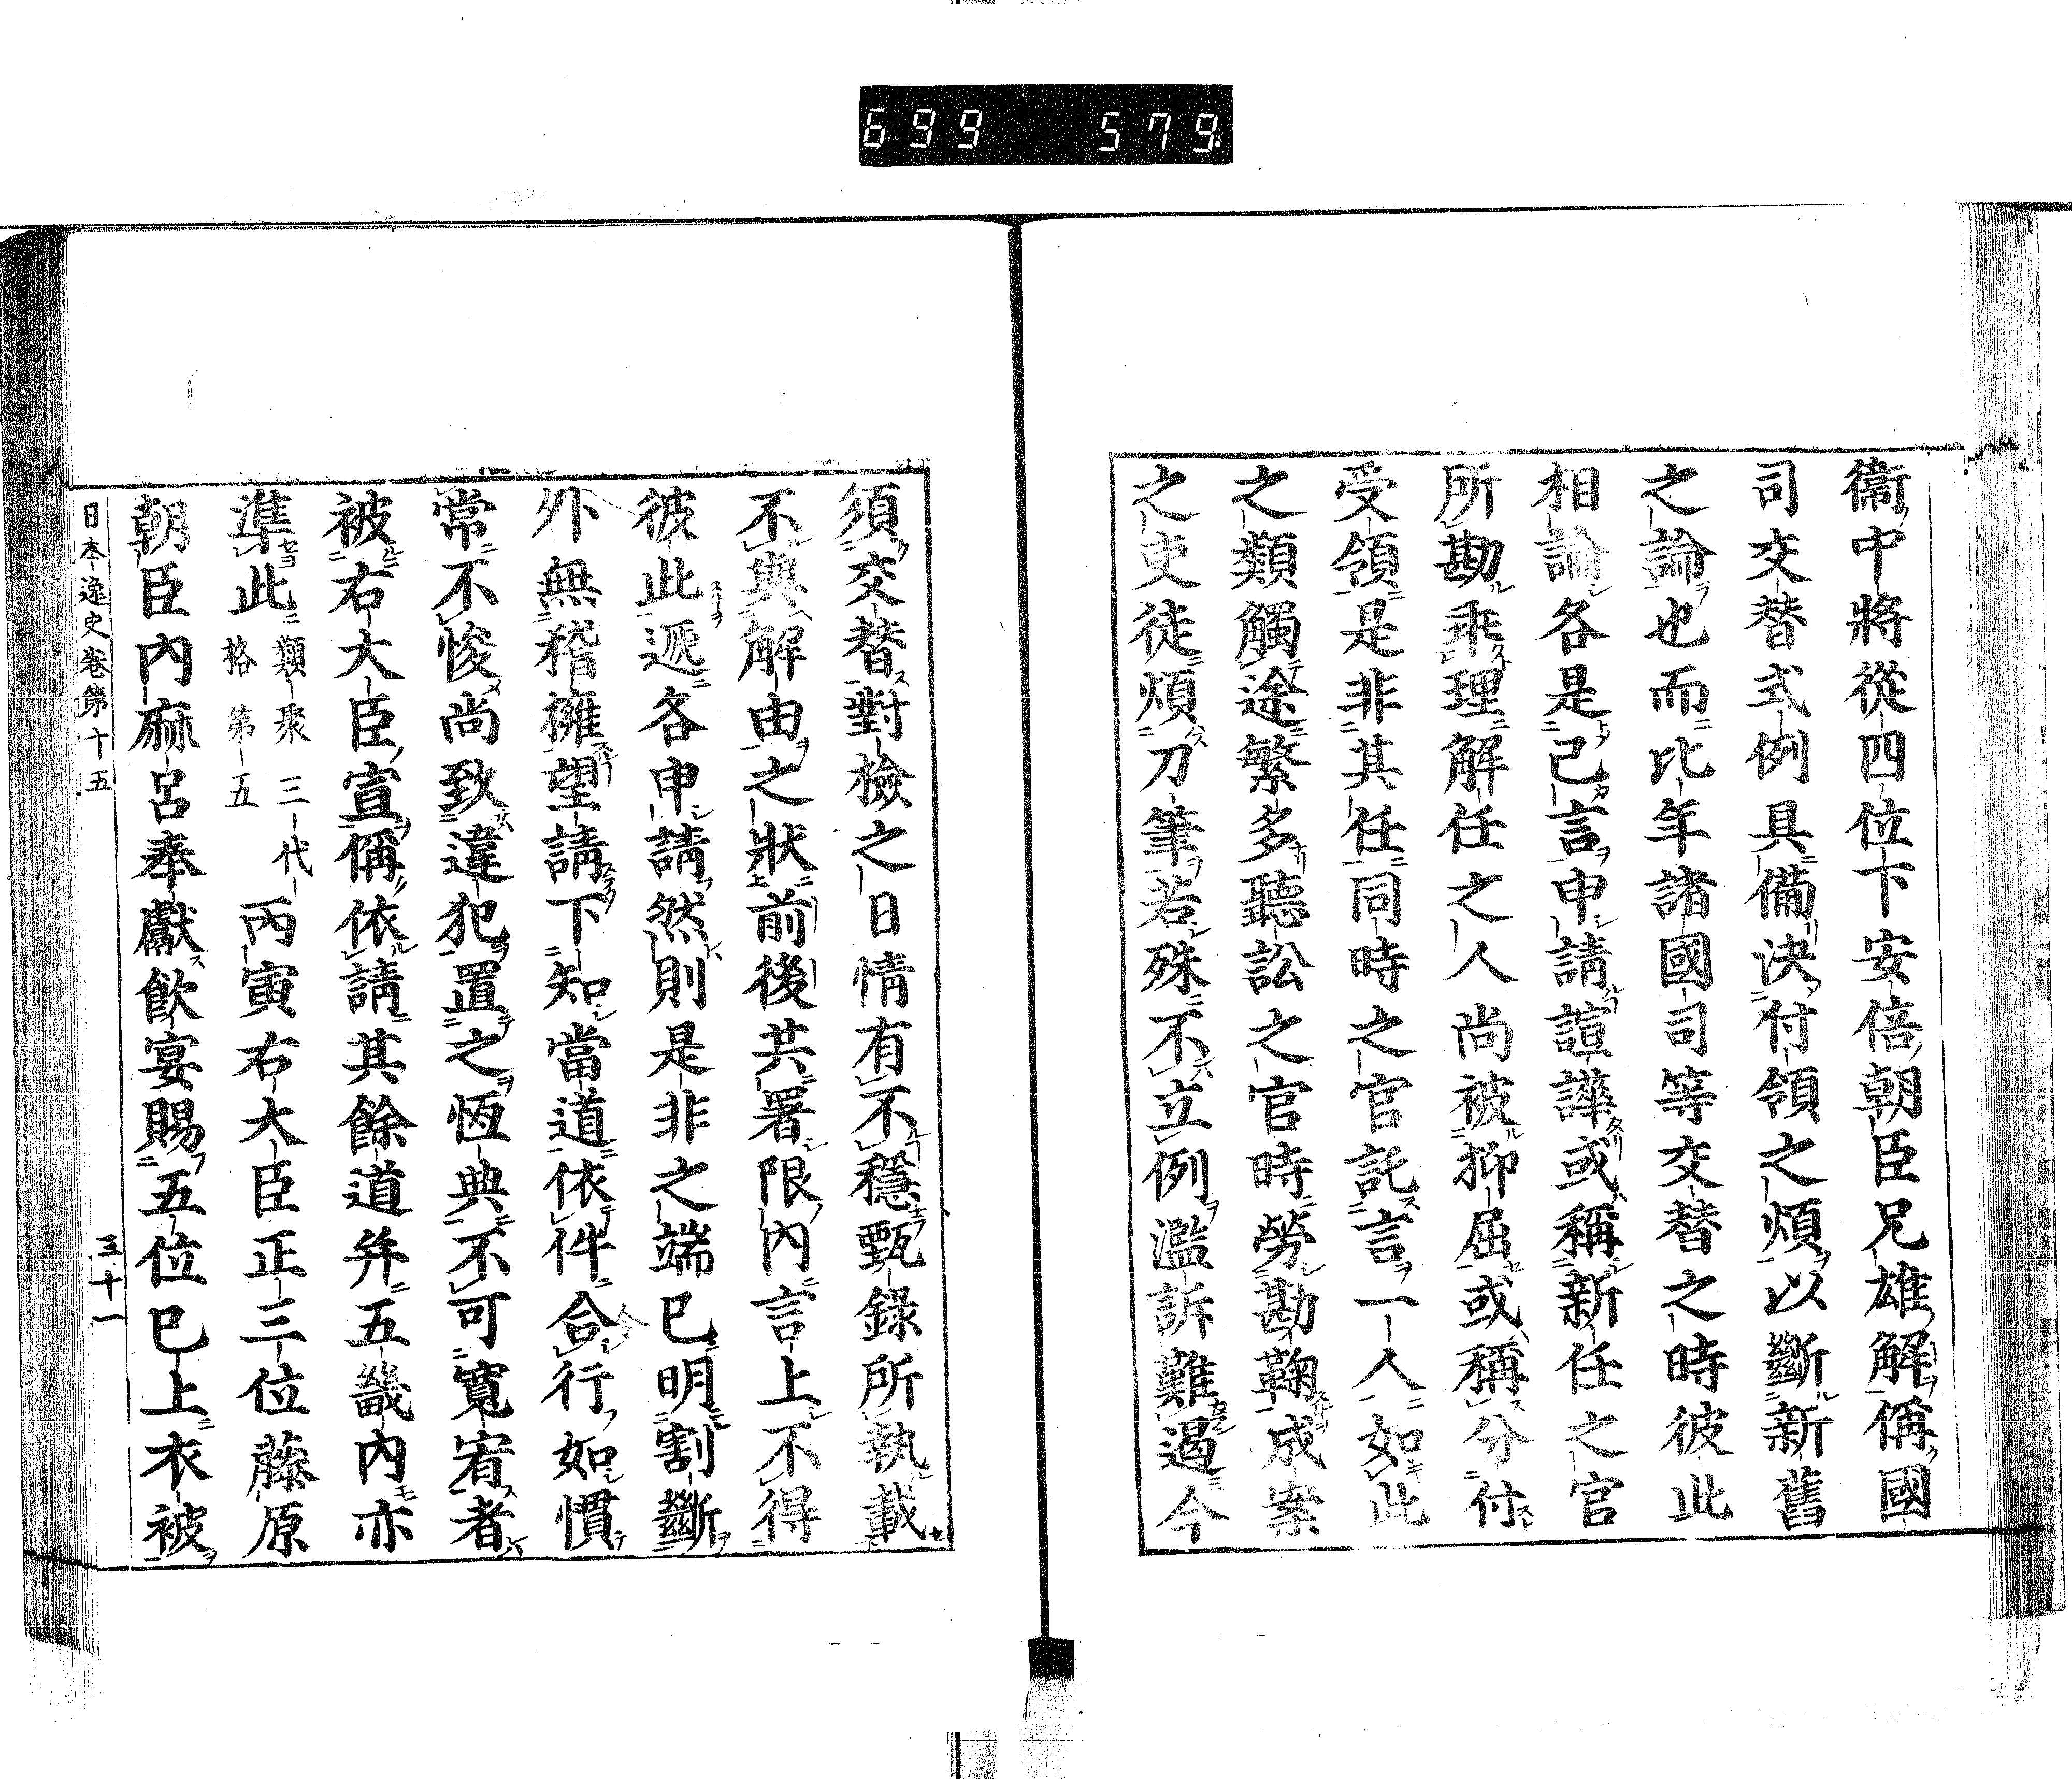 699 579
衞中將從四位下安倍朝臣兄雄解偁國
司交替式例具備決付領之煩以斷新舊
之論也而比年諸國司等交替之時彼此
相論各是己言申請諠譁或稱新任之官
所勘乖理解任之人尚被抑屈或稱分付
受領是非其任同時之官託言一人如此
之類觸途繁多聽訟之官時勞勘鞠成案
之吏徒煩刀筆若殊不立例濫訴難遏今
須交替對檢之日情有不穩甄錄所執載
不與解由之狀前後共署限內言上不得
彼此遞各申請然則是非之端已明割斷
外無稽擁望請下知當道依件合行如慣
常不悛尚致違犯置之恆典不可寬宥者
被右大臣宣偁依請其餘道幷五畿內亦
準此類聚三代格第五丙寅右大臣正三位藤原
朝臣內麻呂奉獻飮宴賜五位已上衣被
日本逸史卷第十五 三十一